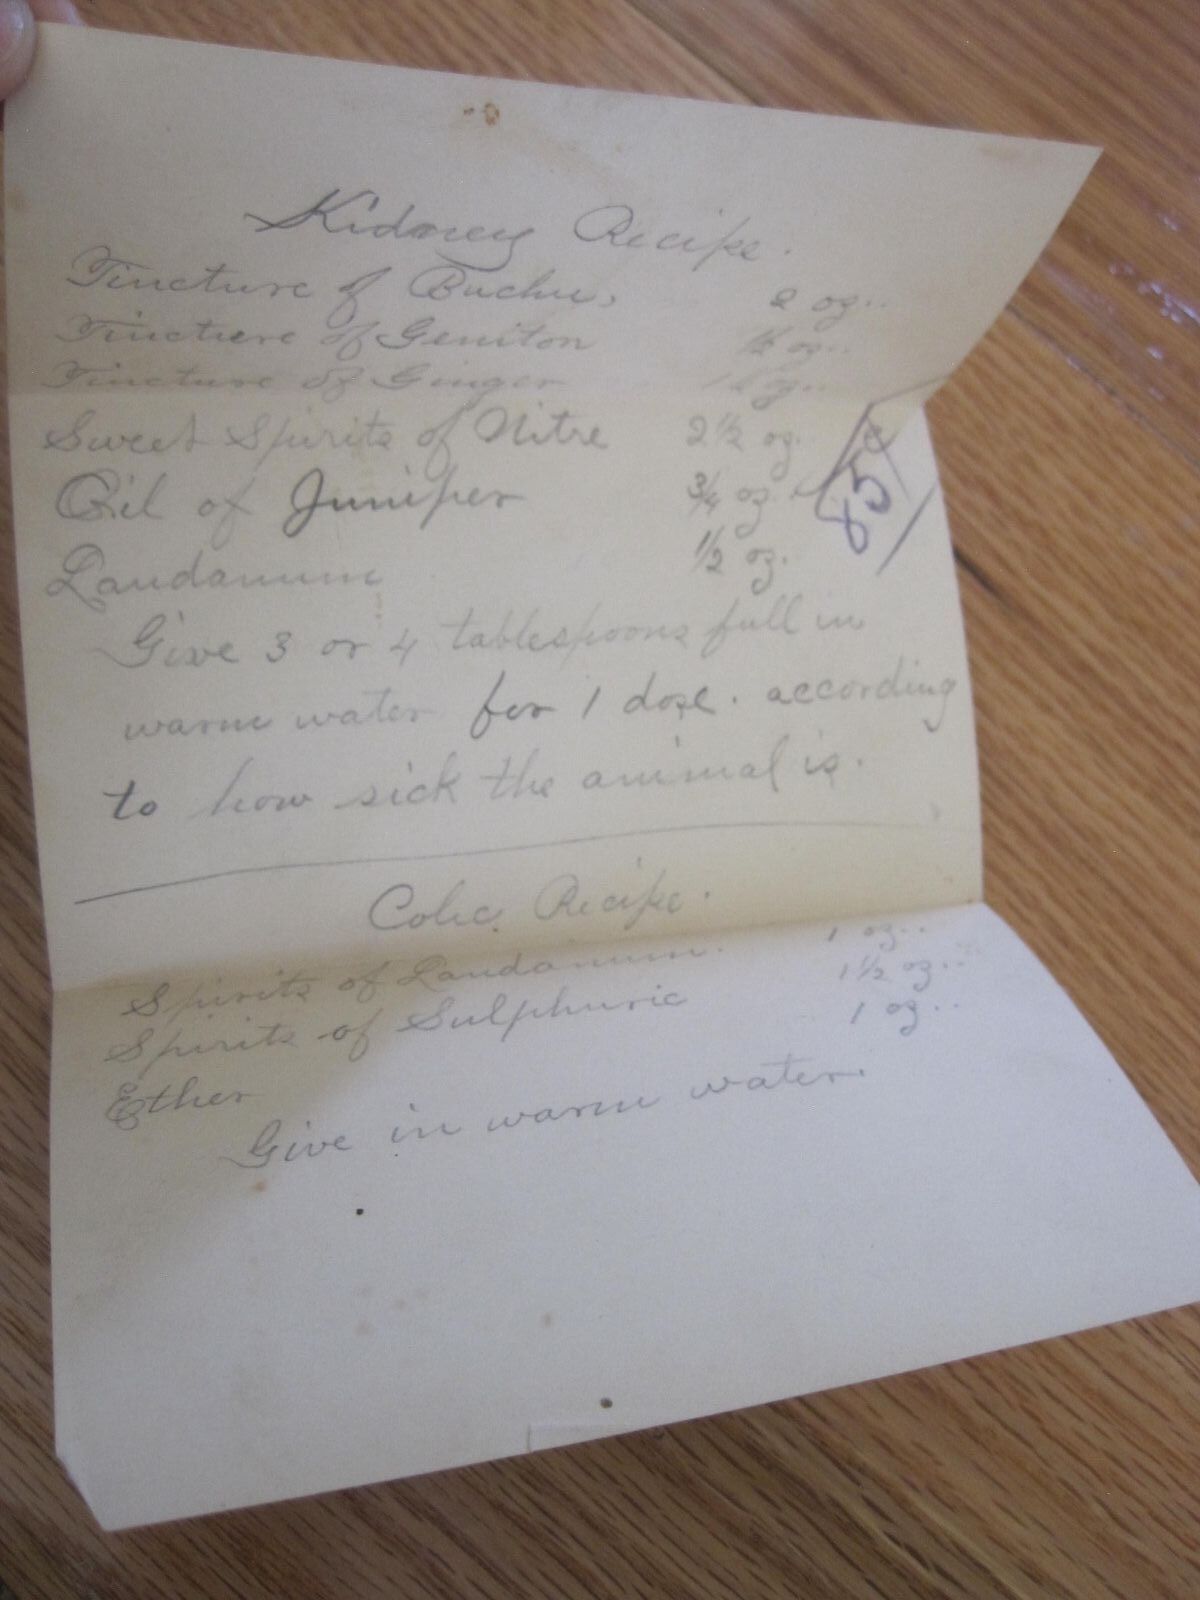 Kidney Recipe.
Tincture of Buchu, 2 oz..
Tincture of Geniton ½ oz..
Tincture of Ginger oz..
Sweet Spirits of Nitre 2½ oz.
Oil of Juniper ¾ oz.
85¢
Laudanum ½ oz.
Give 3 or 4 tablespoons full in
warm water for 1 dose. according
to how sick the animal is.
Colic Recipe.
Spirits of Laudanum. 1 oz..
Spirits of Sulphuric 1½ oz..
Ether 1 oz..
Give in warm water.